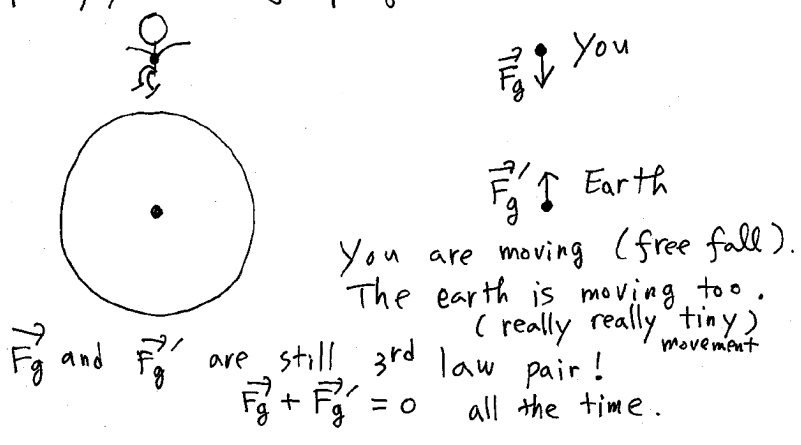 F⃗g You
F⃗g′ Earth
You are moving (free fall).
The earth is moving too.
(really really tiny)
movement
F⃗g and F⃗g′ are still 3rd law pair!
F⃗g + F⃗g′ = 0 all the time.